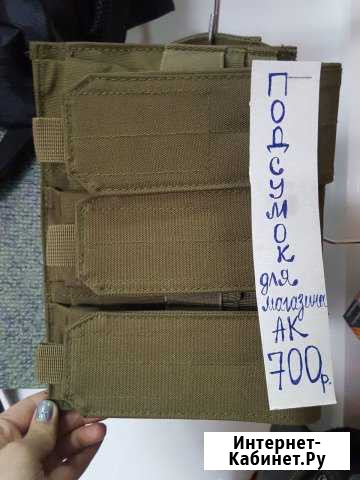 Подсумок
для
магазина
АК
700р.
Интернет-
Кабинет.Ру